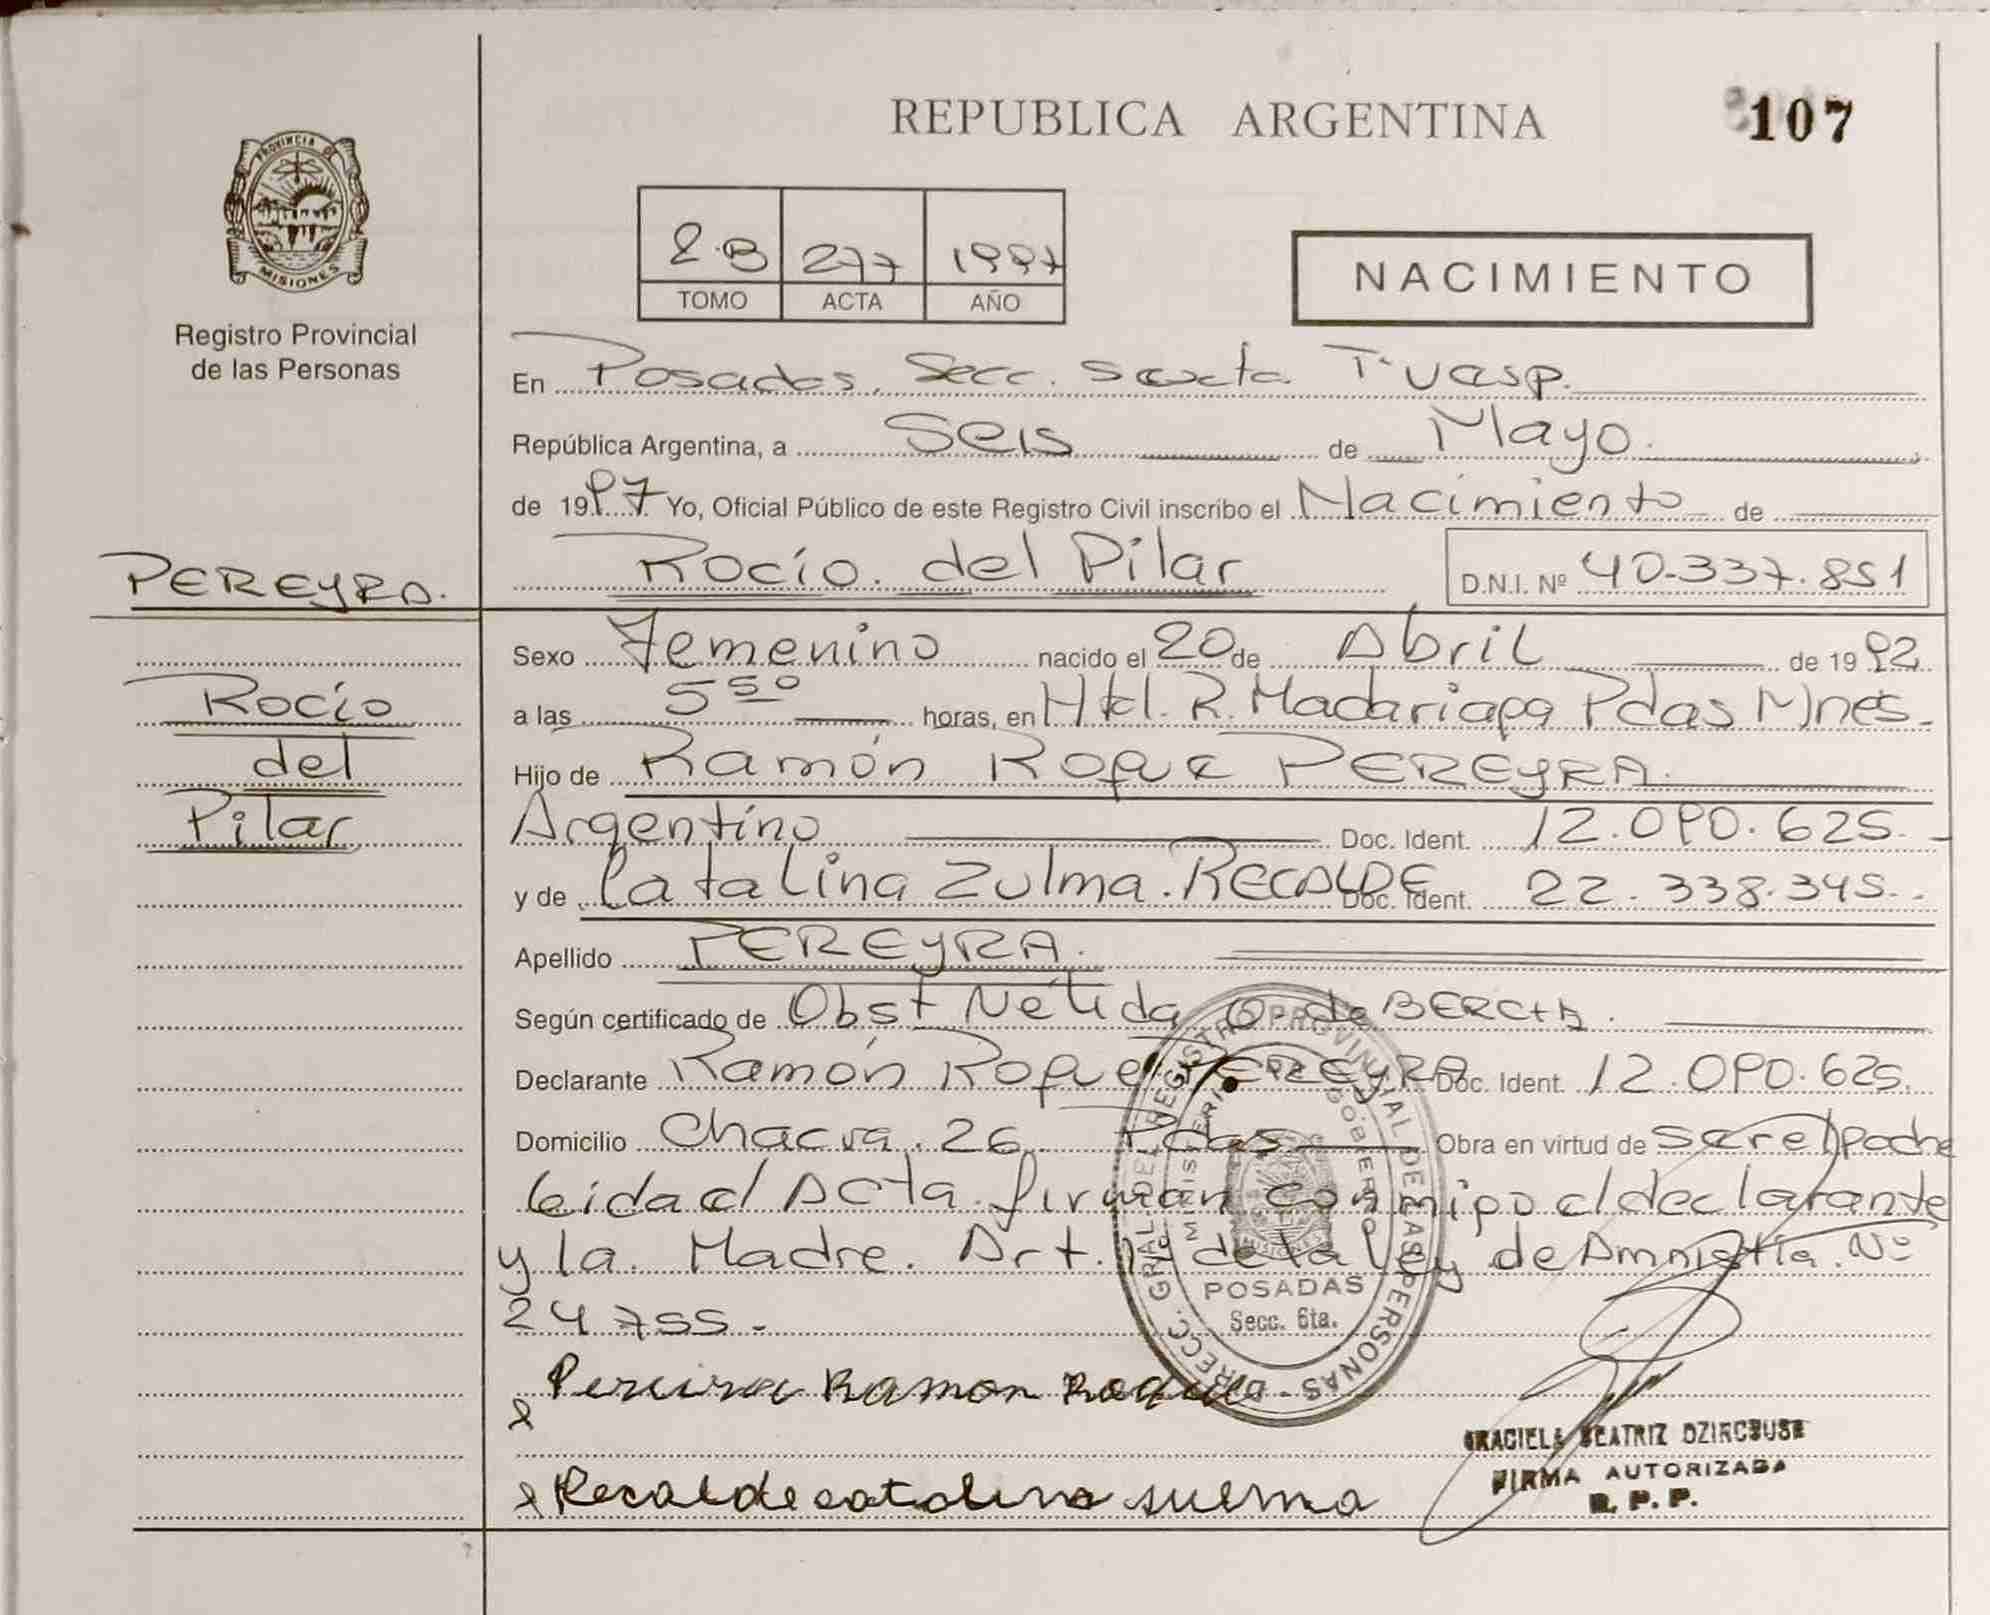 REPUBLICA ARGENTINA
107
PROVINCIA DE
MISIONES
Registro Provincial
de las Personas
2.B 277 1997
TOMO ACTA AÑO
NACIMIENTO
En Posadas. Secc. Sexta
República Argentina, a Seis de Mayo.
de 1997 Yo, Oficial Público de este Registro Civil inscribo el Nacimiento de
Rocío. del Pilar D.N.I. Nº 40.337.851
PEREYRA.
Rocío
del
Pilar
Sexo Femenino nacido el 20 de Abril de 1992
a las 5 50 horas, en Htal. R. Madariaga Pdas Mnes.
Hijo de Ramón Roque PEREYRA.
Argentino Doc. Ident. 12.090.625.
y de Catalina Zulma. RECALDE Doc. Ident. 22.338.345.
Apellido PEREYRA.
Según certificado de Obst Nélida O de
Declarante Ramón Roque PEREYRA Doc. Ident. 12.090.625.
Domicilio Chacra. 26 Pdas Obra en virtud de
Leida el Acta. firman conmigo el declarante
y la Madre. Art. de la Ley de Amnistía. Nº
24755.-
Pereira Ramon Roque
Recalde catalina sulma
DIRECC. GRAL. DEL REGISTRO PROVINCIAL DE LAS PERSONAS
MINISTERIO DE GOBIERNO
MISIONES
POSADAS
Secc. 6ta.
GRACIELA BEATRIZ
FIRMA AUTORIZADA
R. P. P.